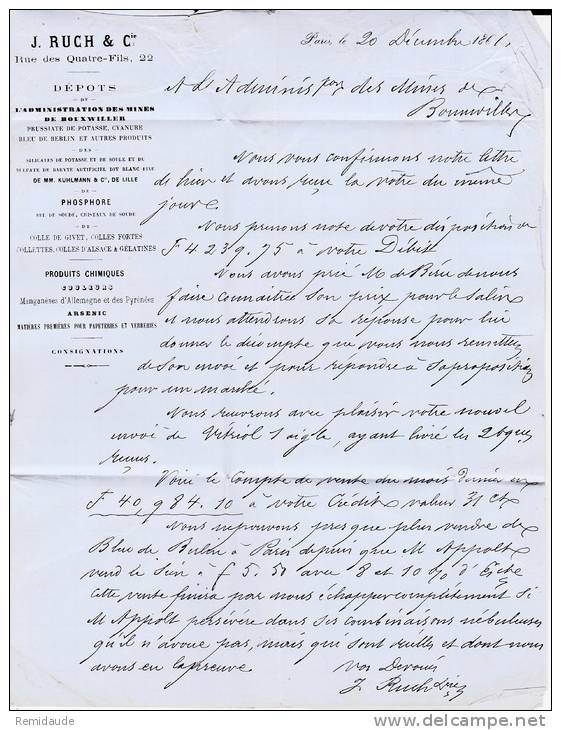 J. RUCH & Cie
Rue des Quatre-Fils, 22
DÉPOTS
DE
L'ADMINISTRATION DES MINES
DE BOUXWILLER
PRUSSIATE DE POTASSE, CYANURE
BLEU DE BERLIN ET AUTRES PRODUITS
DES
SILICATES DE POTASSE ET DE SOUDE ET DU
SULFATE DE BARYTE ARTIFICIEL DIT BLANC FIXE
DE MM. KUHLMANN & Cie, DE LILLE
DE
PHOSPHORE
SEL DE SOUDE, CRISTAUX DE SOUDE
DE
COLLE DE GIVET, COLLES FORTES
COLLETTES, COLLES D'ALSACE & GÉLATINES
PRODUITS CHIMIQUES
COULEURS
Manganèses d'Allemagne et des Pyrénées
ARSENIC
MATIÈRES PREMIÈRES POUR PAPETERIES ET VERRERIES
CONSIGNATIONS
Paris, le 20 Décembre 1861,
A L'Administron des Mines de
Bouxwiller
Nous vous confirmons notre lettre
de hier et avons reçu la votre du même
jour.
Nous prenons note de votre disposition de
F 4239.75 à votre Débit
Nous avons prié M de nous
faire connaitre son prix pour le Salin
et nous attendrons sa réponse pour lui
donner le décompte que vous nous remettez
de son envoi et pour répondre à sa proposition
pour un marché.
Nous recevrons avec plaisir votre nouvel
envoi de Vitriol 1 aigle, ayant livré les 2
reçues.
Voici le Compte de vente du mois dernier en
F 40,984.10 à votre Crédit valeur 31 ct
Nous ne pouvons presque plus vendre de
Bleu de Berlin à Paris depuis que M Appolt
vend le Sien à f 5.50 avec 8 et 10% d'Escte
Cette vente finira par nous échapper complétement si
M Appolt persévère dans ses combinaisons nébuleuses
qu'il n'avoue pas, mais qui sont réelles et dont nous
avons eu la preuve.
Vos Dévoués
J. Ruch & Cie
Remidaude
delcampe.net